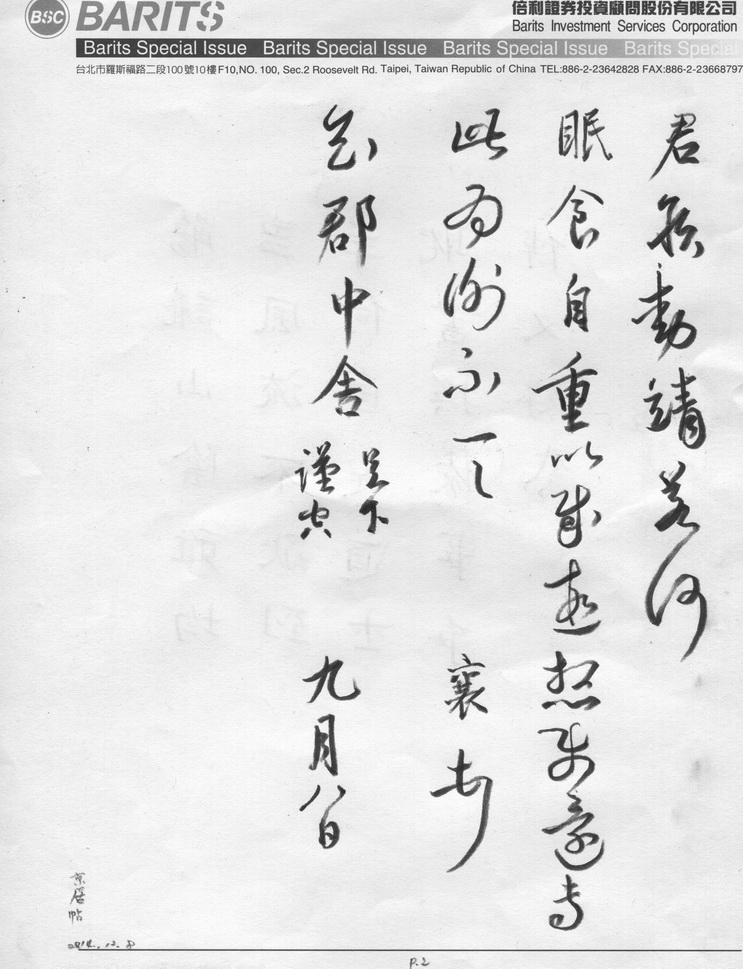 BSC BARITS
倍利證券投資顧問股份有限公司
Barits Investment Services Corporation
Barits Special Issue Barits Special Issue Barits Special Issue Barits Special
台北市羅斯福路二段100號10樓F10,NO. 100, Sec.2 Roosevelt Rd. Taipei, Taiwan Republic of China TEL:886-2-23642828 FAX:886-2-23668797
君侯動靖若何
眠食自重以
此為謝不一一 襄
郡中舍 足下 謹空 九月八日
京居帖
P.2